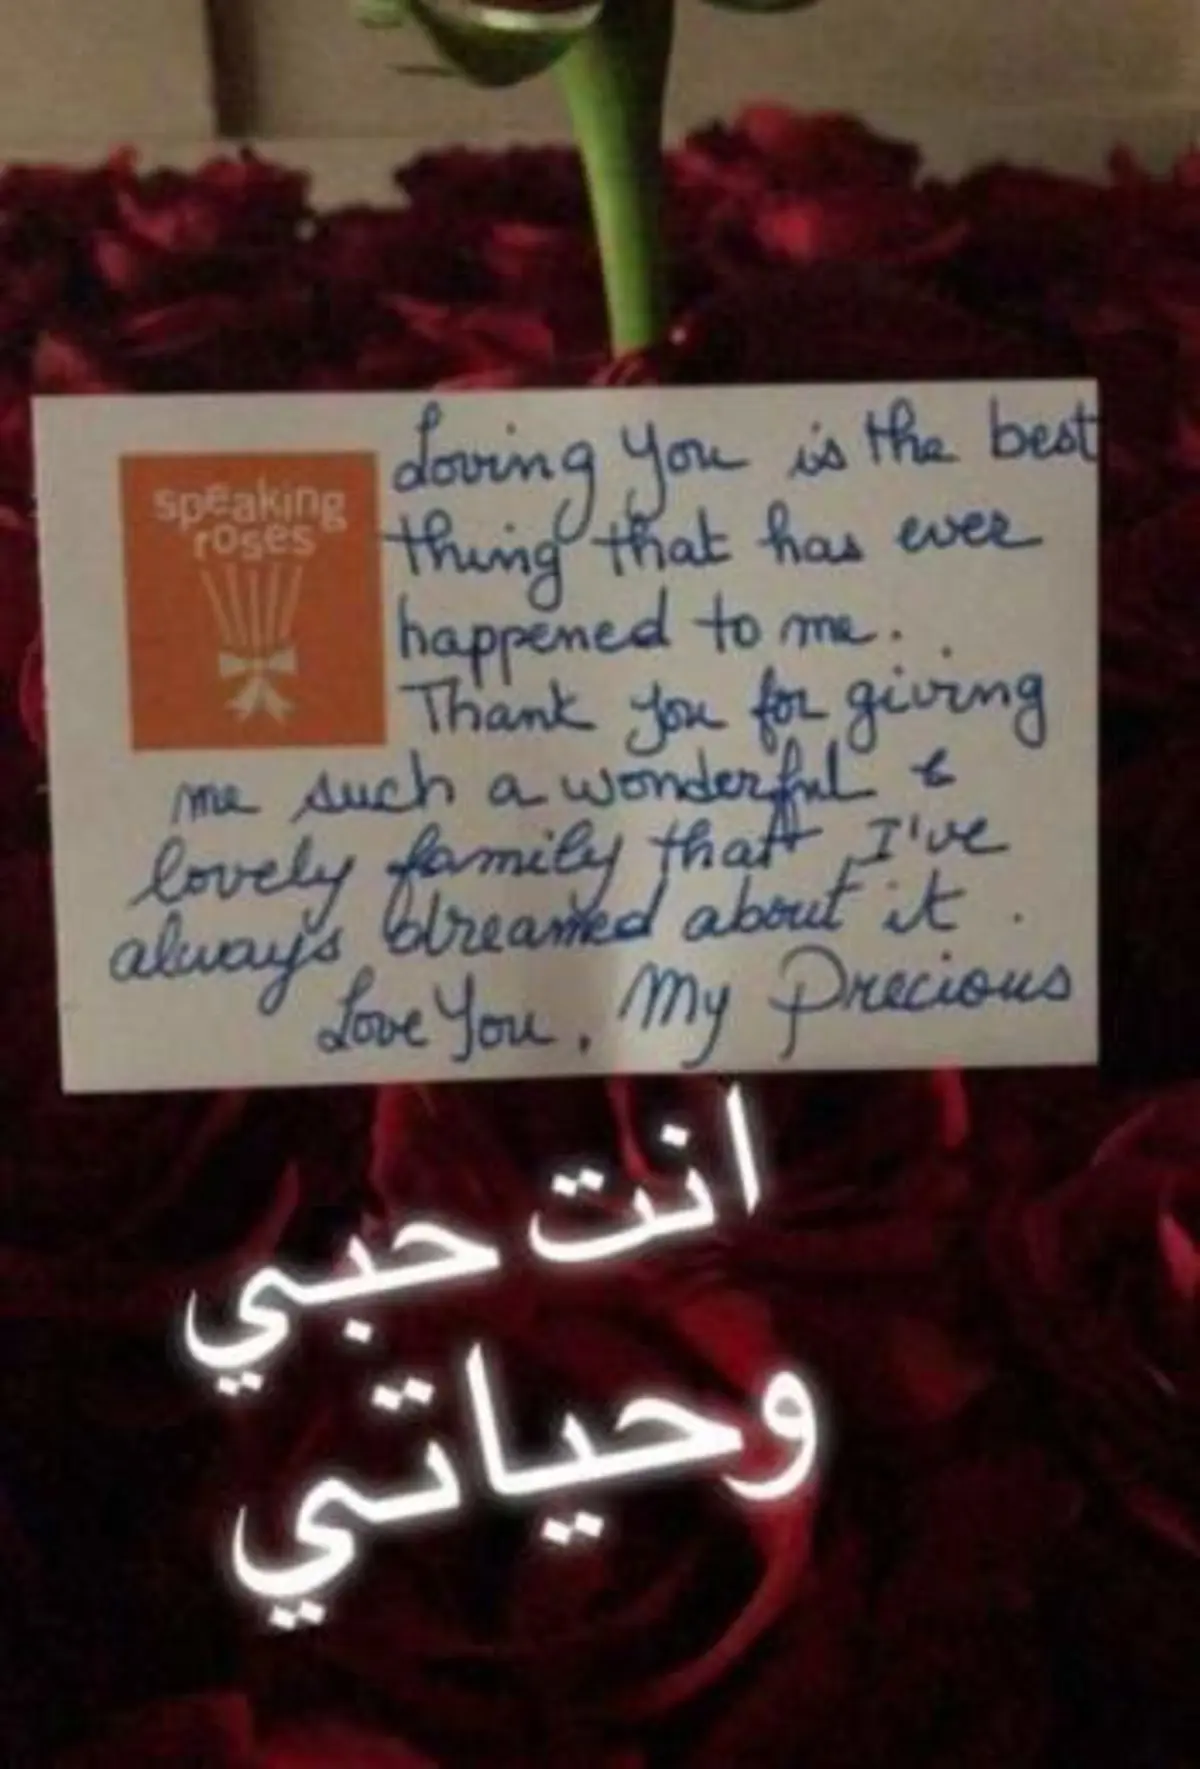 speaking
roses
Loving You is the best
thing that has ever
happened to me.
Thank you for giving
me such a wonderful &
lovely family that I've
always dreamed about it.
Love You, My Precious
انت حبي
وحياتي